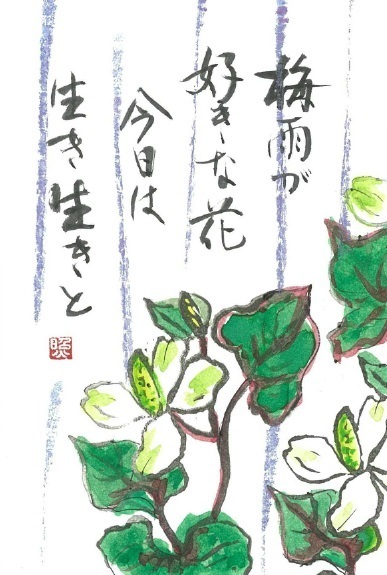 梅雨が
好きな花
今日は
生き生きと